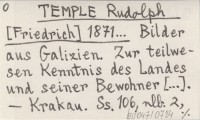 0
TEMPLE Rudolph
[Friedrich] 1871... Bilder
aus Galizien. Zur teilwe-
sen Kenntnis des Landes
und seiner Bewohner [...].
— Krakau. Ss. 106, nlb. 2,
b10410784 %